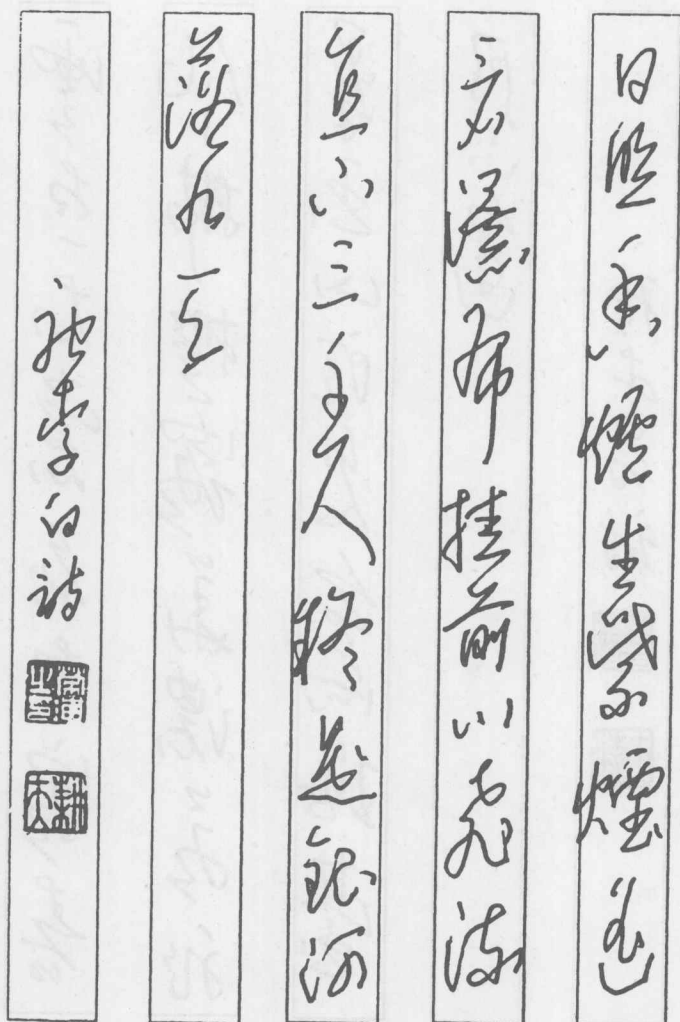 日照香爐生紫煙遙
看瀑布挂前川飛流
直下三千尺疑是銀河
落九天
李白詩